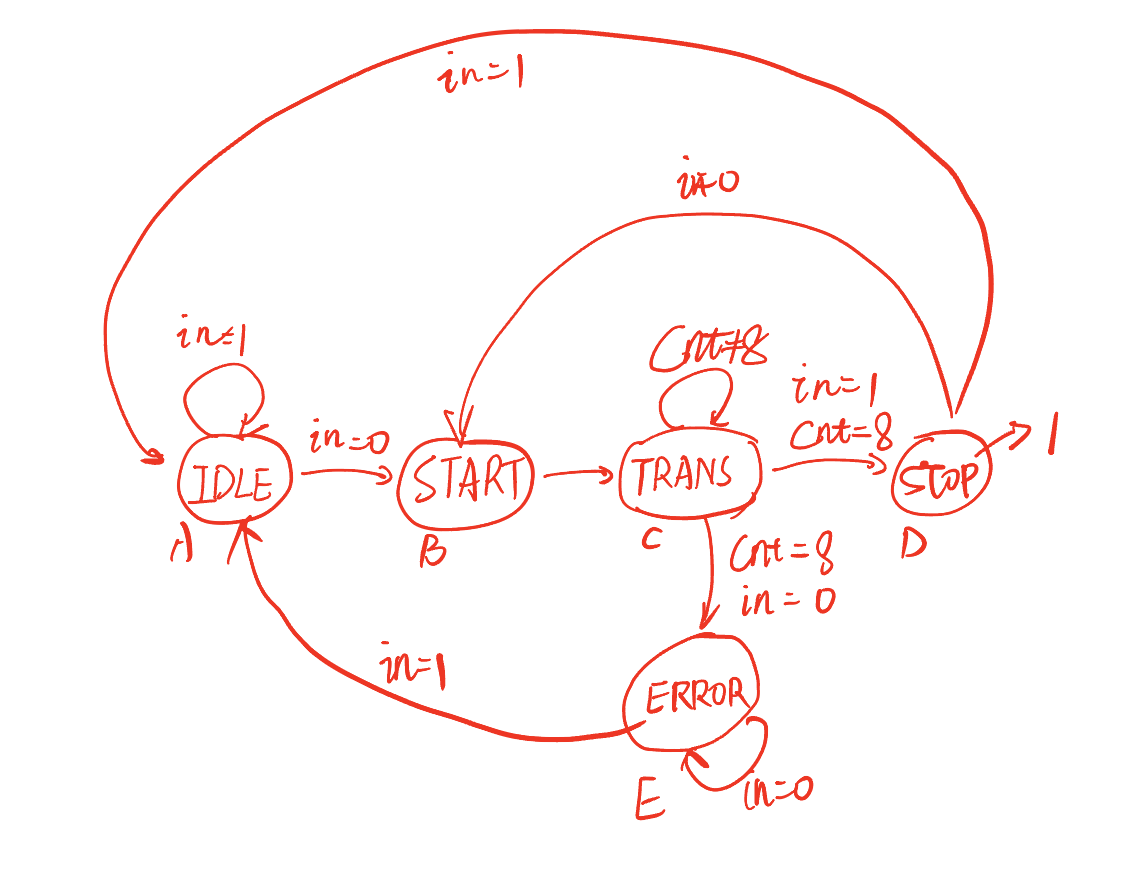 in=1
in=0
in=1
Cnt≠8
in=1
Cnt=8
in=0
IDLE
START
TRANS
STOP
1
A
B
C
D
Cnt=8
in=0
in=1
ERROR
E
in=0